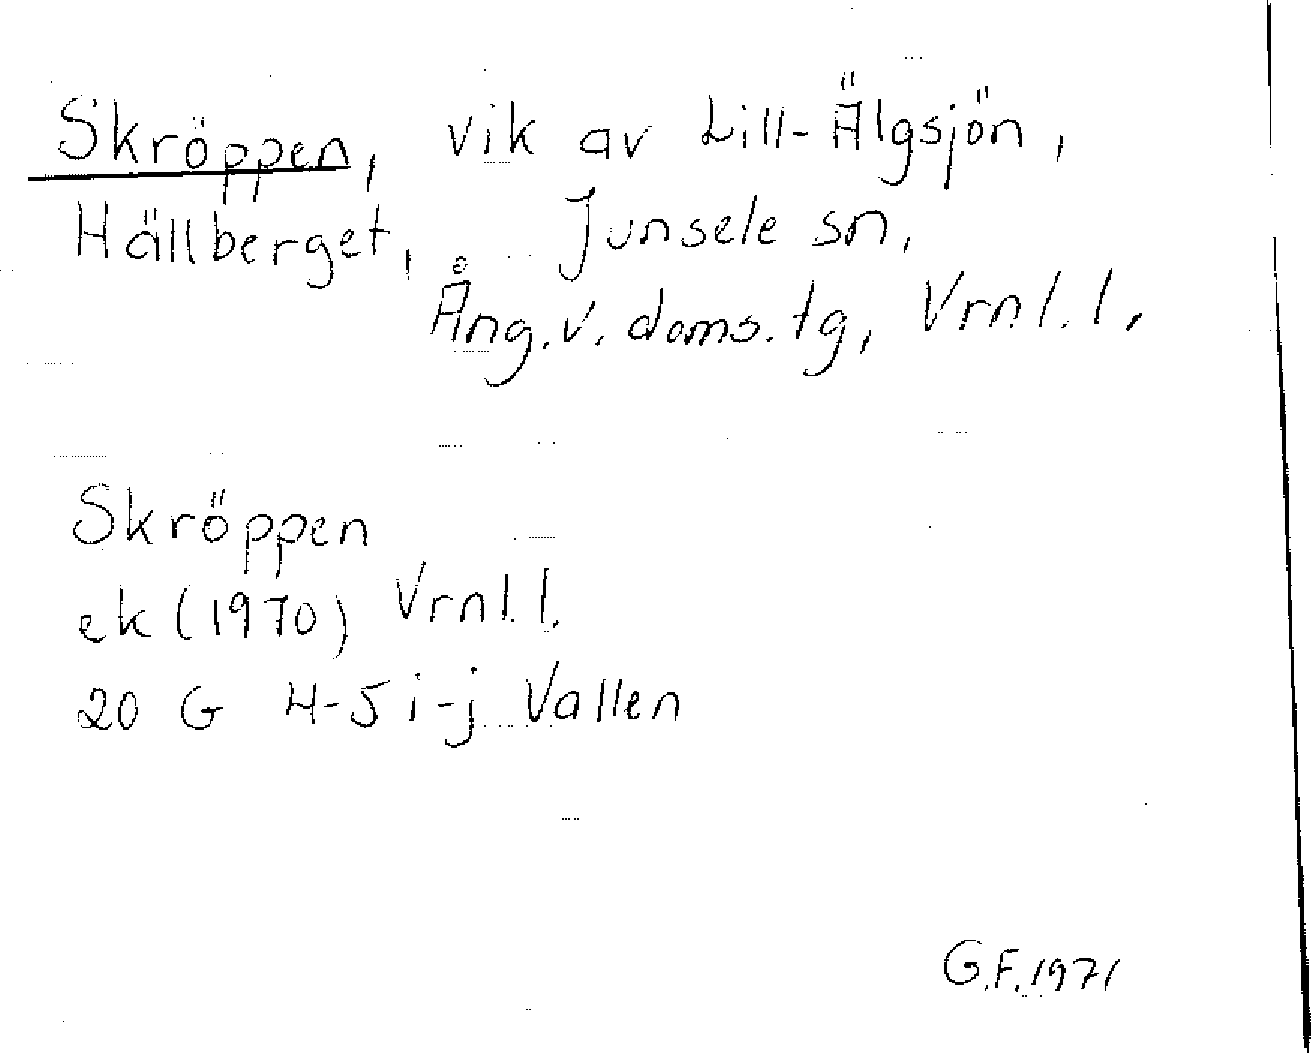 Skröppen, vik av Lill-Älgsjön,
Hällberget, Junsele sn,
Ång. v. doms. tg, Vrnl. l.
Skröppen
ek (1970) Vrnl. l.
20 G 4-5 i-j Vallen
G.F. 1971